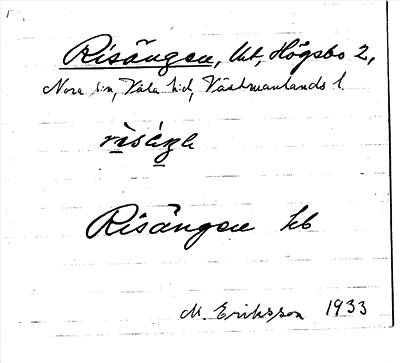 Risängen, lht, Högsbo 2,
Nora sn, Våla hd, Västmanlands l.
Risängen
M. Eriksson 1933